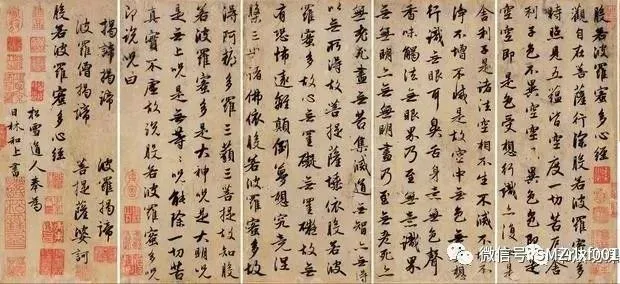 般若波羅蜜多心經
觀自在菩薩行深般若波羅蜜多
時照見五蘊皆空度一切苦厄舍
利子色不異空空不異色色即是
空空即是色受想行識亦復如是
舍利子是諸法空相不生不滅不垢不
淨不增不減是故空中無色無受想
行識無眼耳鼻舌身意無色聲
香味觸法無眼界乃至無意識界
無無明亦無無明盡乃至無老死亦
無老死盡無苦集滅道無智亦無得
以無所得故菩提薩埵依般若波
羅蜜多故心無罣礙無罣礙故無
有恐怖遠離顛倒夢想究竟涅
槃三世諸佛依般若波羅蜜多故
得阿耨多羅三藐三菩提故知般
若波羅蜜多是大神咒是大明咒
是無上咒是無等々咒能除一切苦
真實不虛故說般若波羅蜜多咒
即說咒曰
揭諦揭諦 波羅揭諦
波羅僧揭諦 菩提薩婆訶
般若波羅蜜多心經
松雪道人奉為
日林和上書
微信号